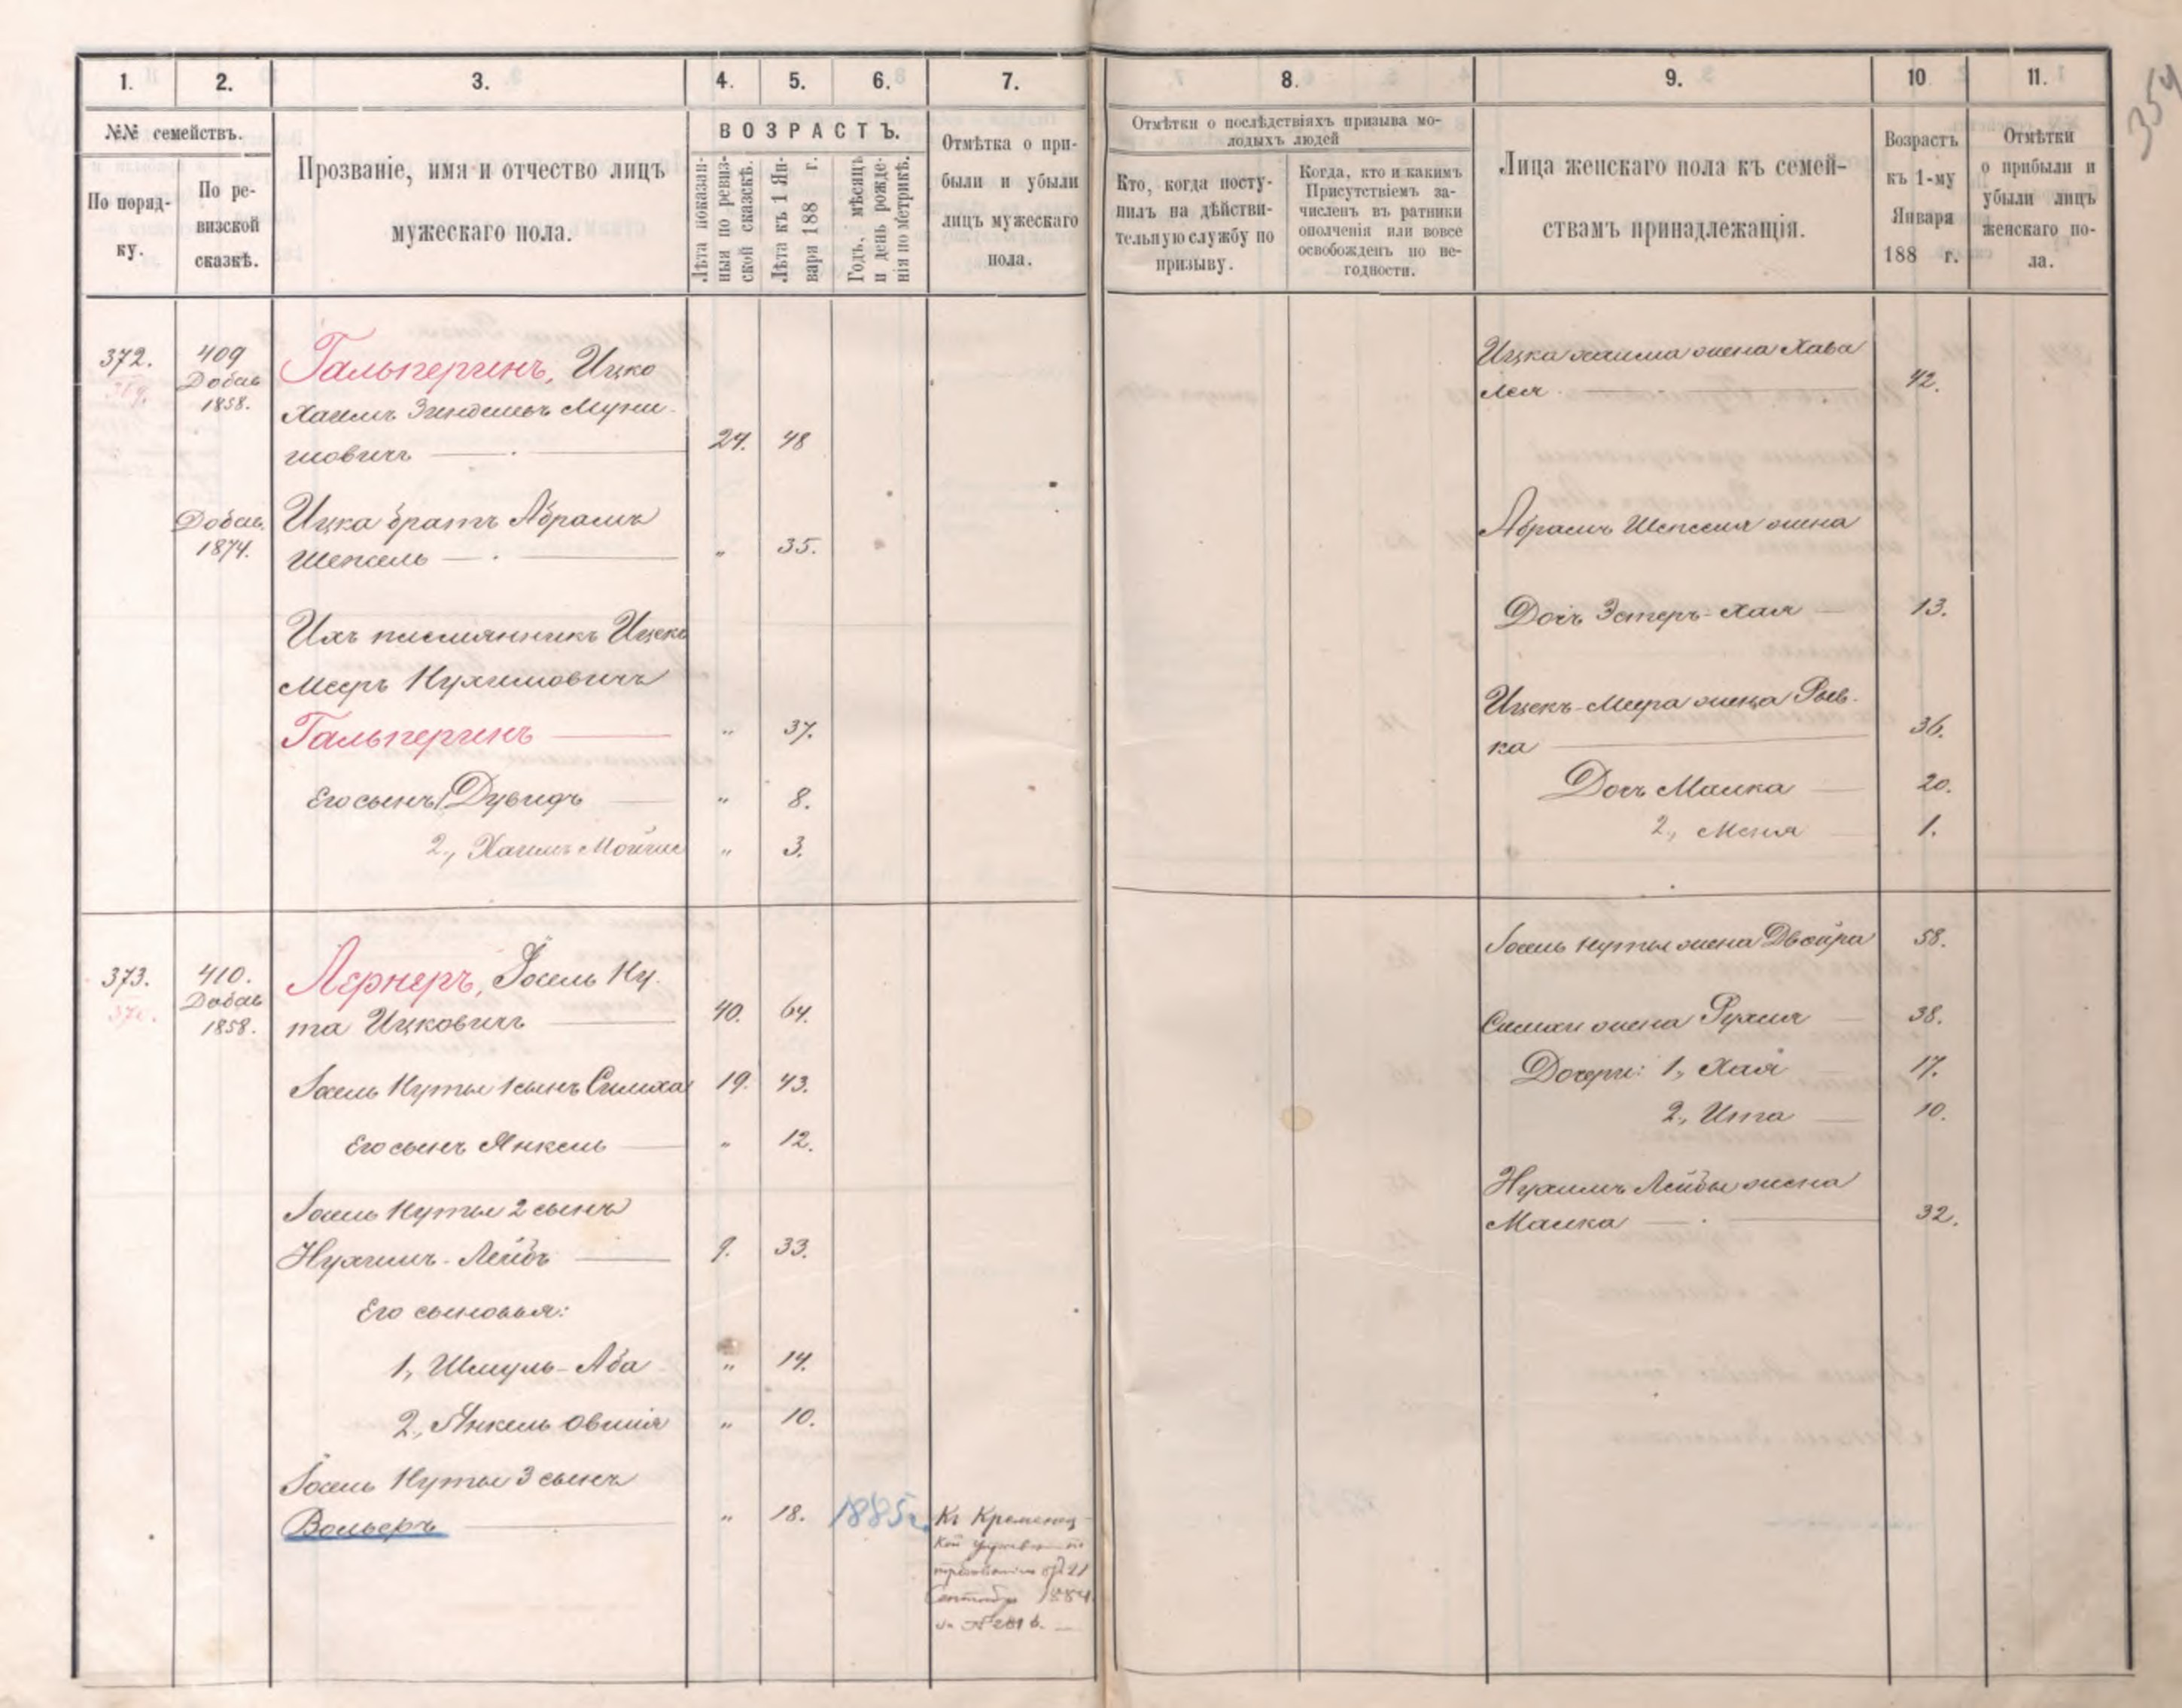 1.
2.
3.
4.
5.
6.
7.
8.
9.
10
11.
354
№№ семействъ.
По поряд-
ку.
По ре-
визской
сказкѣ.
Прозваніе, имя и отчество лицъ
мужескаго пола.
ВОЗРАСТЪ.
Лѣта показан-
ныя по ревиз-
ской сказкѣ.
Лѣта къ 1 Ян-
варя 188 г.
Годъ, мѣсяцъ
и день рожде-
нія по метрикѣ.
Отмѣтка о при-
были и убыли
лицъ мужескаго
пола.
Отмѣтки о послѣдствіяхъ призыва мо-
лодыхъ людей
Кто, когда посту-
пилъ на дѣйстви-
тельную службу по
призыву.
Когда, кто и какимъ
Присутствіемъ за-
численъ въ ратники
ополченія или вовсе
освобожденъ по не-
годности.
Лица женскаго пола къ семей-
ствамъ принадлежащія.
Возрастъ
къ 1-му
Января
188 г.
Отмѣтки
о прибыли и
убыли лицъ
женскаго по-
ла.
372.
409
Добав
1858.
Гальперинъ, Ицко
Хаимъ Зинделъ
мовичъ
24. 48
Добав.
1874.
Ицка братъ Абрамъ
Шепсель
„ 35.
Ихъ племянникъ Ицекъ
Мееръ Нухимовичъ
Гальперинъ
„ 37.
Его сынъ, Дувидъ
„ 8.
2., Хаимъ
„ 3.
Ицка хаима жена Хава
Лея
42.
Абрамъ Шепселя жена
Дочь Эстеръ-Хая
13.
Ицекъ-Меера жена Рыв-
ка
36.
Дочь Малка
20.
2., Меня
1.
373.
370.
410.
Добав
1858.
Лернеръ, Іосель Ну-
та Ицковичъ
40. 64.
Іосель Нуты 1 сынъ Симха
19. 43.
Его сынъ Янкель
„ 12.
Іосель Нуты 2 сынъ
Нухимъ-Лейбъ
9. 33.
Его сыновья:
1, Шмуль-Аба
„ 14.
2., Янкель Овшія
„ 10.
Іосель Нуты 3 сынъ
Вольеръ
„ 18. 1885г.
Къ Кременец-
кой
21
1884
за №
Іосель Нуты жена Двойра
58.
Симхи жена Рухля
38.
Дочери: 1, Хая
17.
2., Ита
10.
Нухимъ Лейбы жена
Малка
32.